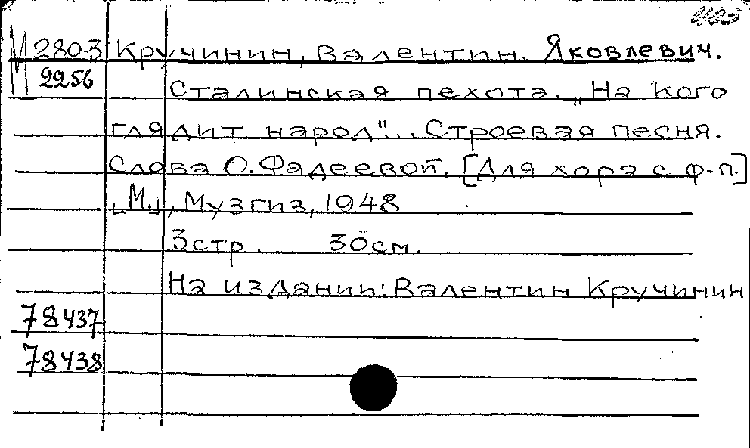 М 280-3 Кручинин, Валентин. Яковлевич.
2256
Сталинская пехота. „На кого
глядит народ"... Строевая песня.
Слова О. Фадеевой. [Для хора с ф-п.]
„М.", Музгиз, 1948
3 стр. 30 см.
На издании: Валентин Кручинин
78437
78438